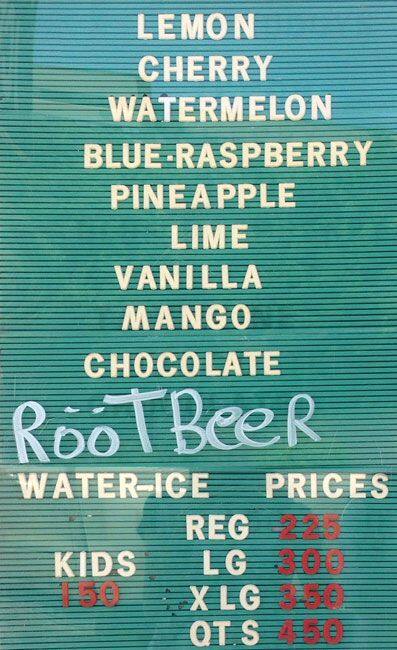 LEMON
CHERRY
WATERMELON
BLUE-RASPBERRY
PINEAPPLE
LIME
VANILLA
MANGO
CHOCOLATE
RööTBeeR
WATER-ICE PRICES
REG 225
KIDS LG 300
150 XLG 350
QTS 450